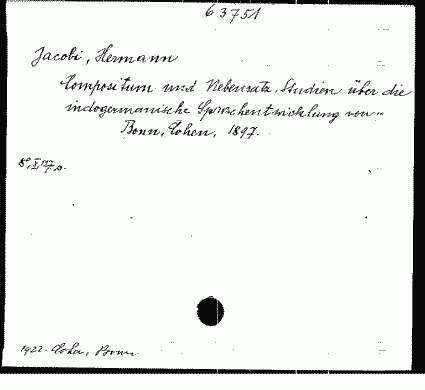 63751
Jacobi, Hermann
Compositum und Nebensatz. Studien über die
indogermanische Sprachentwicklung von -"
Bonn, Cohen, 1897.
8°, X, 127 p.
1922. Cohen, Bonn.